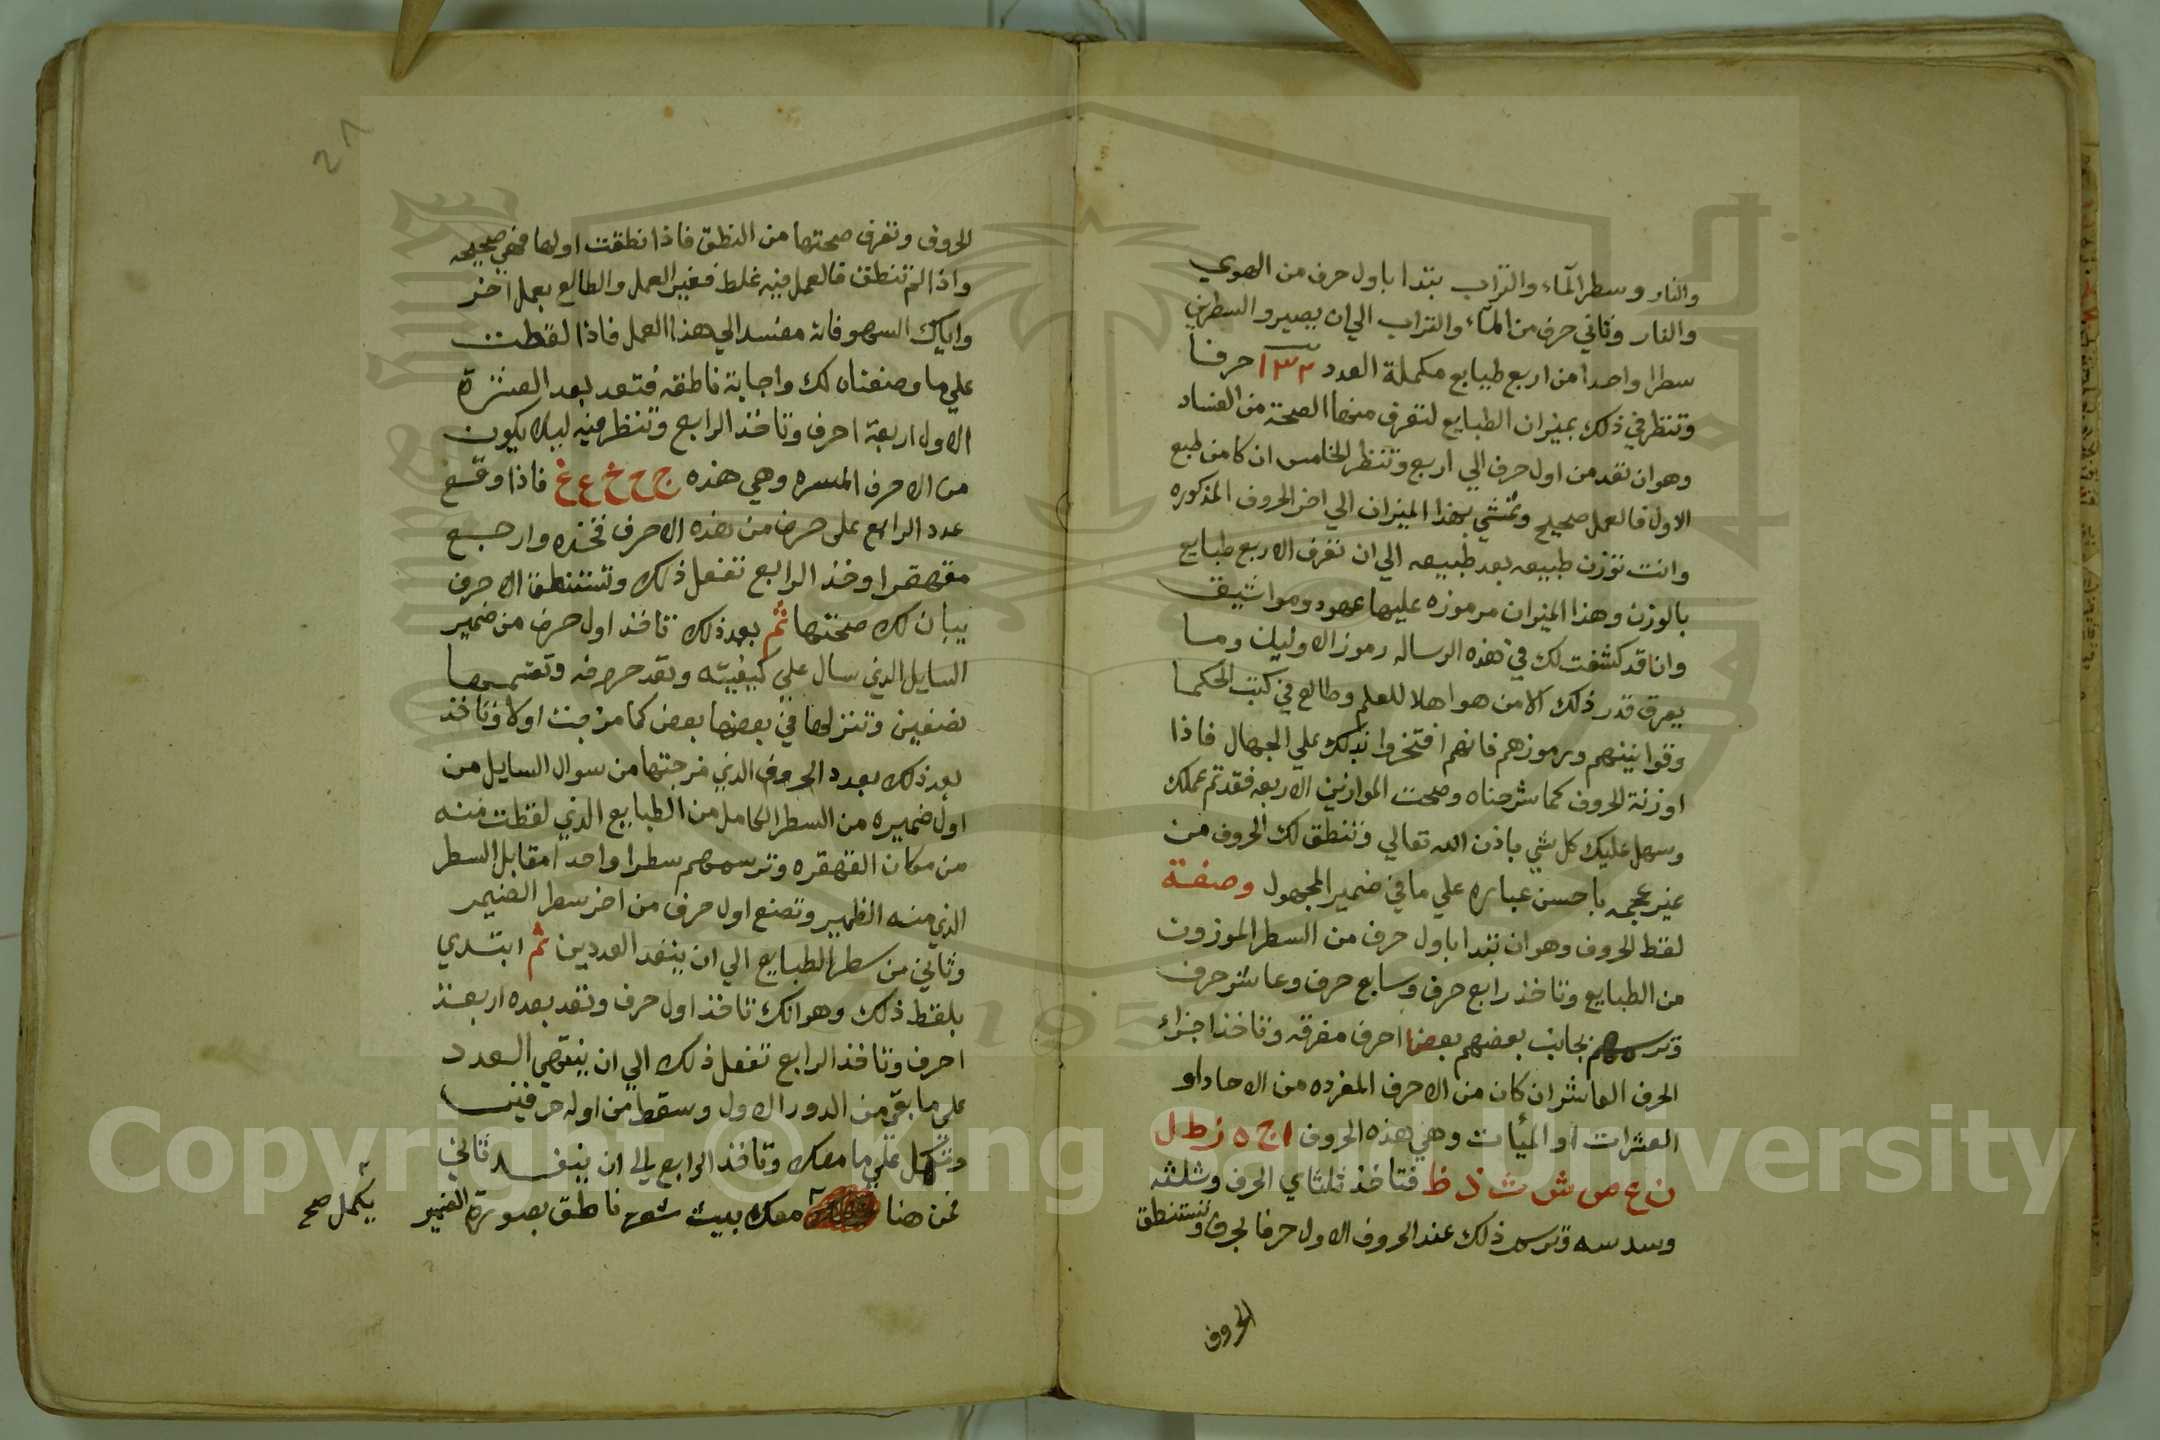 والنار وسطر الماء والتراب بتدا باول حرف من الهوي
والنار وثاني حرف من الماء والتراب الي ان يصيرو السطرين
سطرا واحدا من اربع طبايع مكملة العدد ١٣٢ حرفا
وتنظر في ذلك بميزان الطبايع لتعرف منها الصحة من الفساد
وهو ان تعد من اول حرف الي اربع وتنظر الخامس ان كا من طبع
الاول فالعمل صحيح وتمشي بهذا الميزان الي اخر الحروف المذكوره
وانت توزن طبيعه بعد طبيعه الي ان تعرف الاربع طبايع
بالوزن وهذا الميزان مرموزه عليها عهود ومواثيق
وانا قد كشفت لك في هذه الرساله رموز الاوليان وما
يعرف قدر ذلك الا من هو اهلا للعلم وطالع في كتب الحكما
وقوانينهم ورموزهم فانهم افتخروا بذلك علي الجهال فاذا
اوزنة الحروف كما شرحناه وصحت الموازين الاربعه فقد تم عملك
وسهل عليك كل شي باذن الله تعالي وتنطق لك الحروف من
غير عجمه باحسن عباره علي ما في ضمير المجهول وصفة
لقط الحروف وهو ان تبدا باول حرف من السطر الموزون
من الطبايع وتاخذ رابع حرف وسابع حرف وعاشر حرف
وترسمهم بجانب بعضهم بعضا احرف مفرقه وتاخذ اجزاء
الحرف العاشر ان كان من الاحرف المفرده من الاحاد او
العشرات او الميأت وهي هذه الحروف ا ج ه ز ط ل
ن ع ص ش ث ذ ظ فتاخذ ثلثاي الحرف وثلثه
وسدسه وترسم ذلك عند الحروف الاول حرفا بحرف وتستنطق
الحروف
الحروف وتعرف صحتها من النطق فاذا نطقت اولها فهي صحيحه
واذا لم تنطق فالعمل فيه غلط فغير العمل والطالع بعمل اخر
واياك السهو فانه مفسد الي هذا العمل فاذا لقطت
علي ما وصفناه لك واجابة ناطقه فتعد بعد العشرة
الاول اربعة احرف وتاخذ الرابع وتنظر فيه ليلا يكون
من الاحرف المسره وهي هذه ج ح خ ع غ فاذا وقع
عدد الرابع على حرف من هذه الاحرف فخذه وارجع
مقهقرا وخذ الرابع تفعل ذلك وتستنطق الاحرف
يبان لك صحتها ثم بعد ذلك تاخذ اول حرف من ضمير
السايل الذي سال علي كيفيته وتعد حروفه وتقسمها
نصفين وتنزلها في بعضها بعض كما مزجت اولا وتاخذ
بعد ذلك بعدد الحروف الذي مزجتها من سوال السايل من
اول ضميره من السطر الكامل من الطبايع الذي لقطت منه
من مكان القهقره وترسمهم سطرا واحدا مقابل السطر
الذي منه الظمير وتصنع اول حرف من اخر سطر الضيمر
وثاني من سطر الطبايع الي ان ينفد العددين ثم ابتدي
بلقط ذلك وهو انك تاخذ اول حرف وتعد بعده اربعة
احرف وتاخذ الرابع تفعل ذلك الي ان ينقضي العدد
علي ما بقي من الدور الاول وسقط من اوله حرفين
وتكمل علي ما معك وتاخذ الرابع الي ان ينفد ثاني
فمن هنا معك بيت شعر ناطق بصورة الضمير
يكمل صح
Copyright © King Saud University
1957